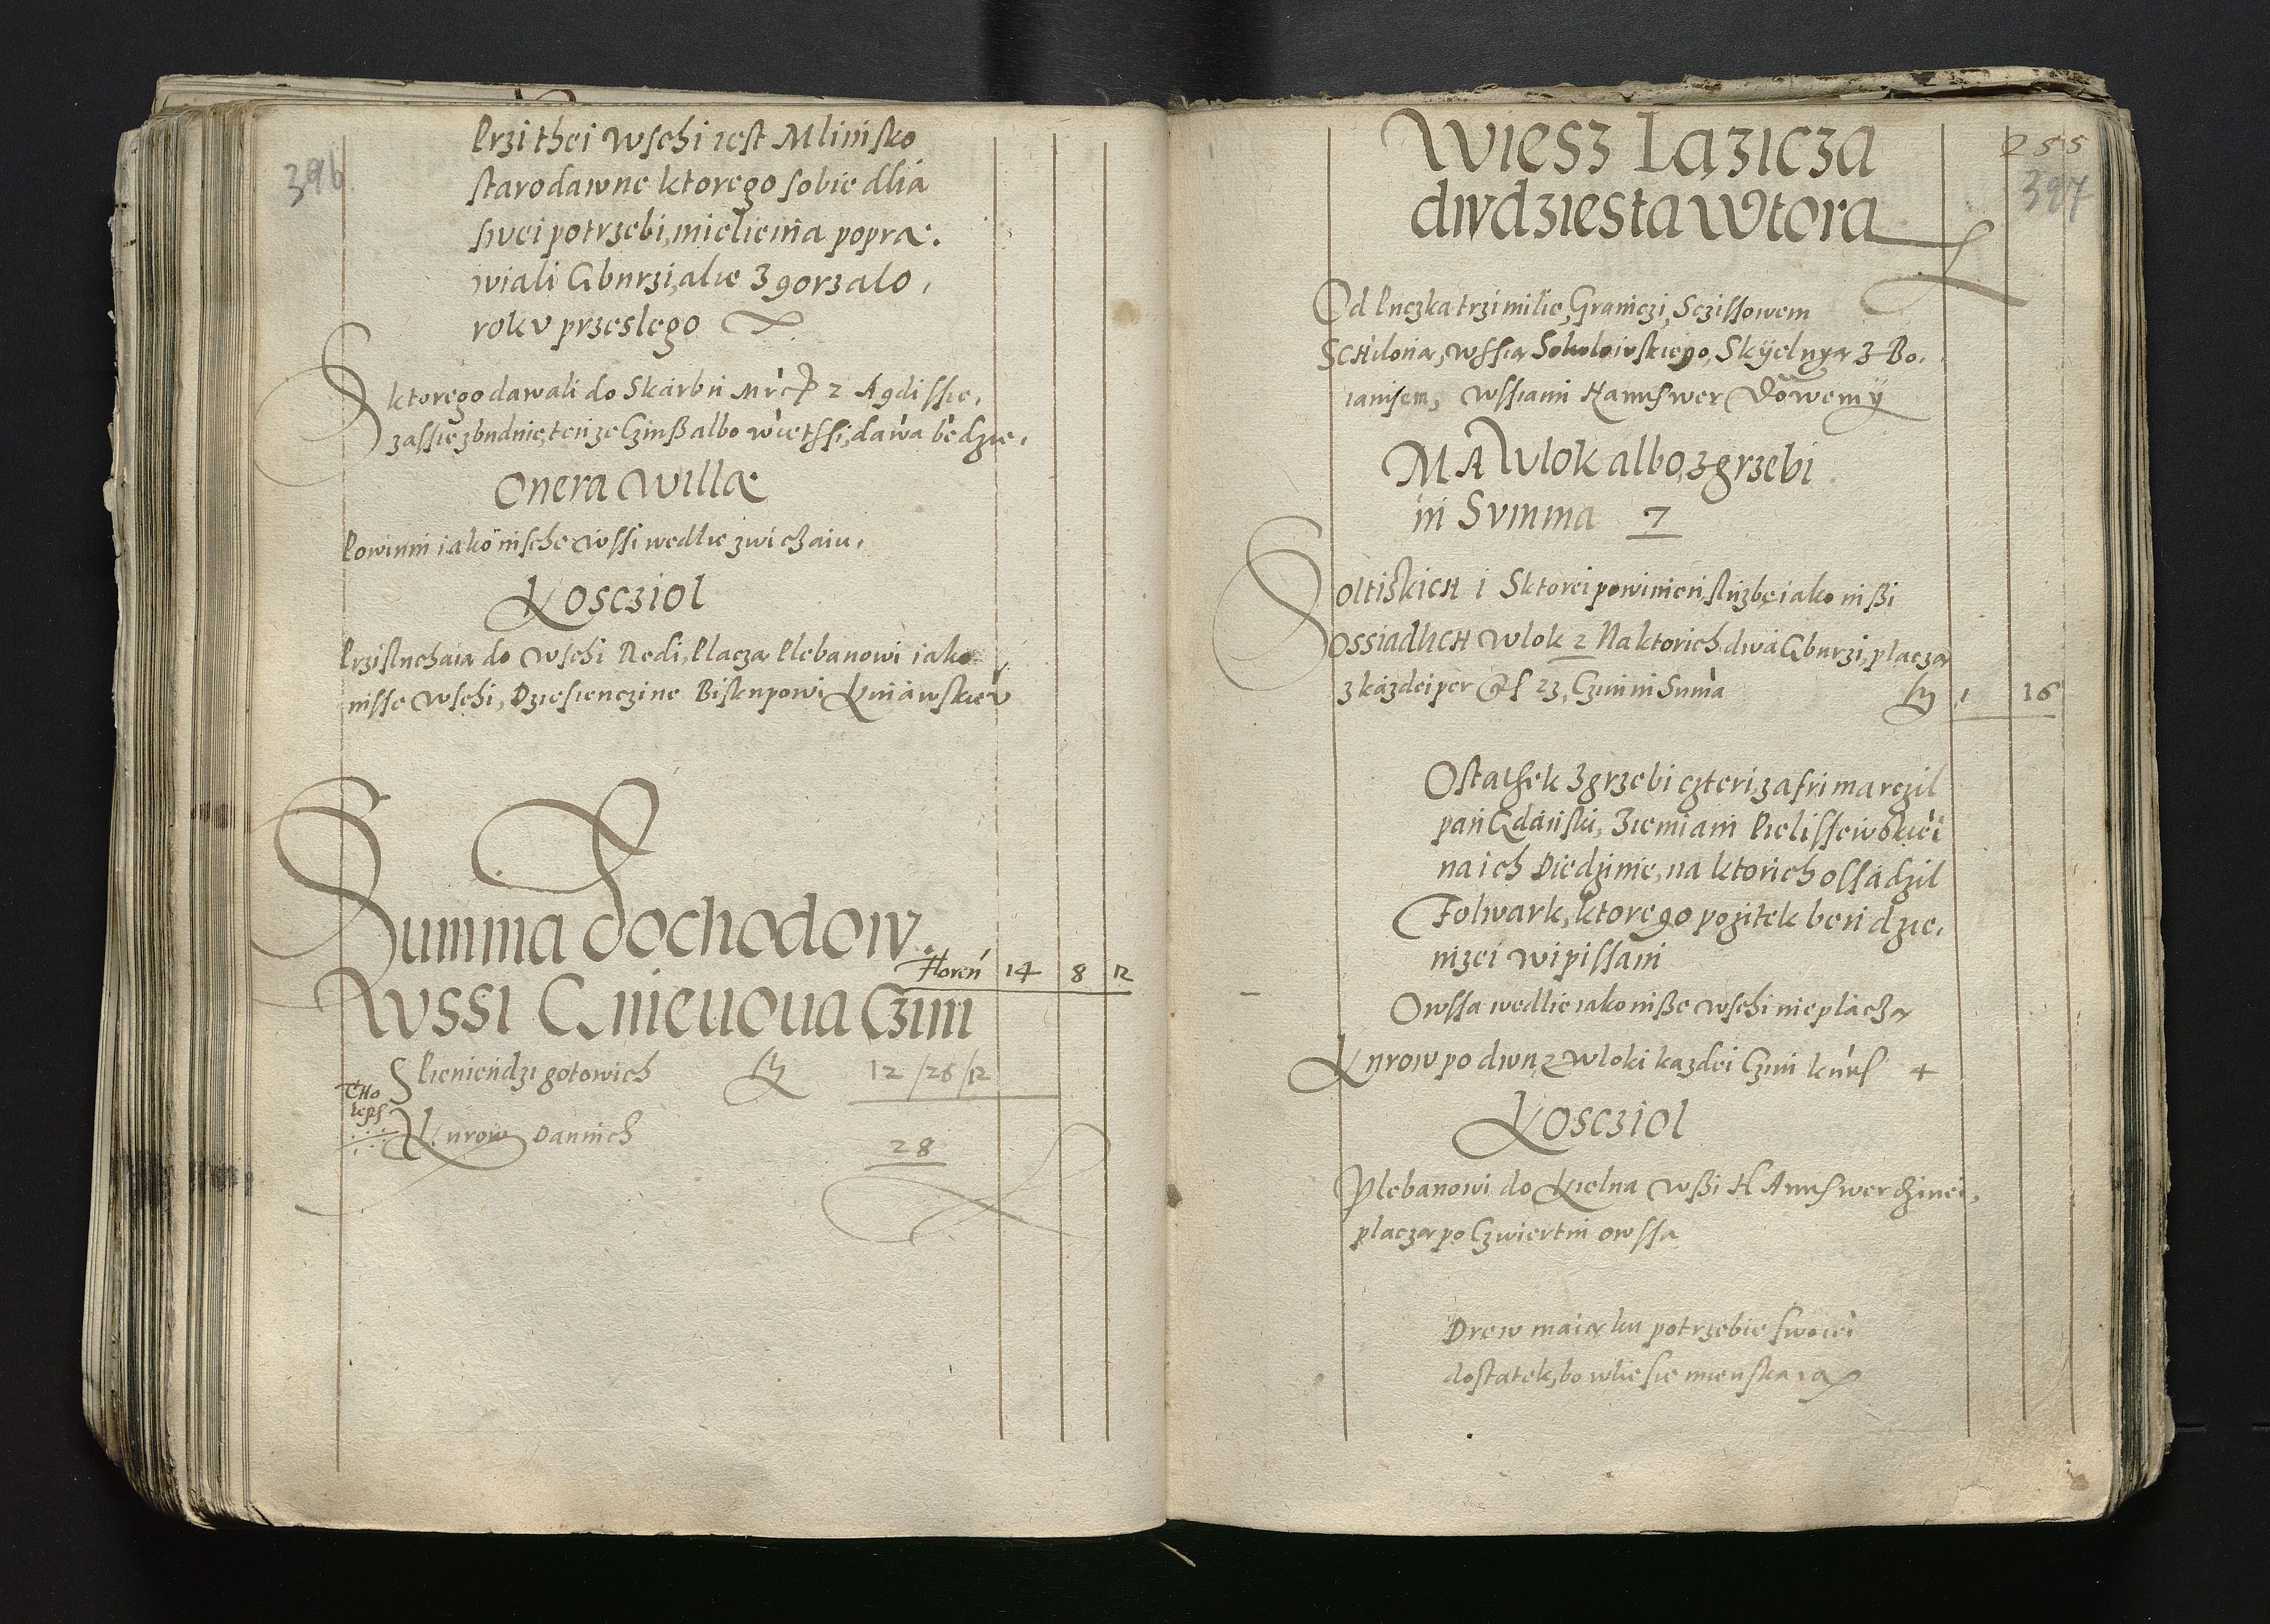 396
Przi thei wschi iest Mlinisko
starodawne ktorego sobie dlia
swei potrzebi, mieliemia popra.
wiali Gburzi, alie zgorzalo,
roku przeslego
S ktorego dawali do Skarbu mrcẜ 2 A gdi ssie,
zassie zbuduie, ten ze Czinß albo wietssi, dawa bedzie,
Onera Willæ
Powinni iako insche wssi wedlie zwiczaiu,
Koscziol
Przisluchaia do wschi Redi, Placza Plebanowi iako
insse wschi, Dziesienczine Biskupowi Kuiawskieu
Summa dochodow
Floren 14 8 12
Z wssi Gnieuoua Czini
Pieniendzi gotowich 12/26/12
Kurow Dannich 28
255
397
Wiesz Lązicza
dwdziesta Wtora
Od Puczka trzi milie, Graniczi, Sczissowem
SCHilona, wssia Sokolowskiego, Skÿelnya z Bo.
ianisem, wssiami Hanuswer Dowemÿ
MA Wlok albo, zgrzebi
in Summa 7
Soltiskich 1 S ktorei powinien sluzbe iako inßi
Ossiadlich Wlok 2 Na ktorich dwa Gburzi, placza
z kazdei per gs 23, Czini in Suma 1 16
Ostathek zgrzebi czteri, zafrimarczil
pan Gdanski, Ziemiam Pielissewskiei
na ich Diedzinie, na ktorich ossadzil
Folwark, ktorego pozitek bendzie,
nizei wipissani
Owssa wedlie iako inße wschi nie placza
Kurow po dwu z wloki kazdei Czini kurs 4
Koscziol
Plebanowi do Kielna wßi HAnuswerdzinei,
placza po Czwiertni owssa
Drew maia ku potrzebie swoiei
dostatek, bo w liesie mienskaia